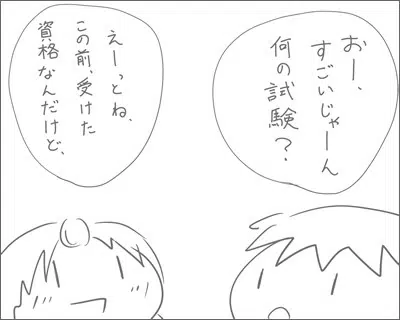 おー、
すごいじゃーん
何の試験？
えーっとね、
この前、受けた
資格なんだけど、